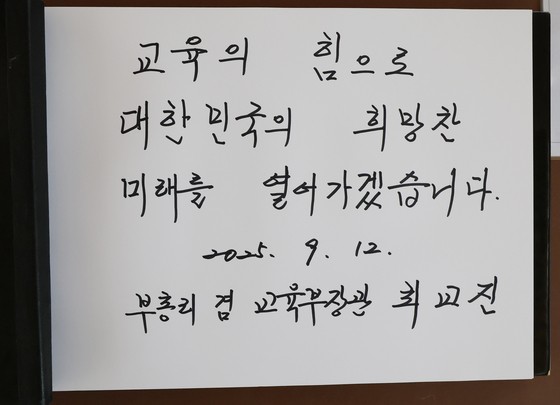 교육의 힘으로
대한민국의 희망찬
미래를 열어가겠습니다.
2025. 9. 12.
부총리 겸 교육부장관 최교진